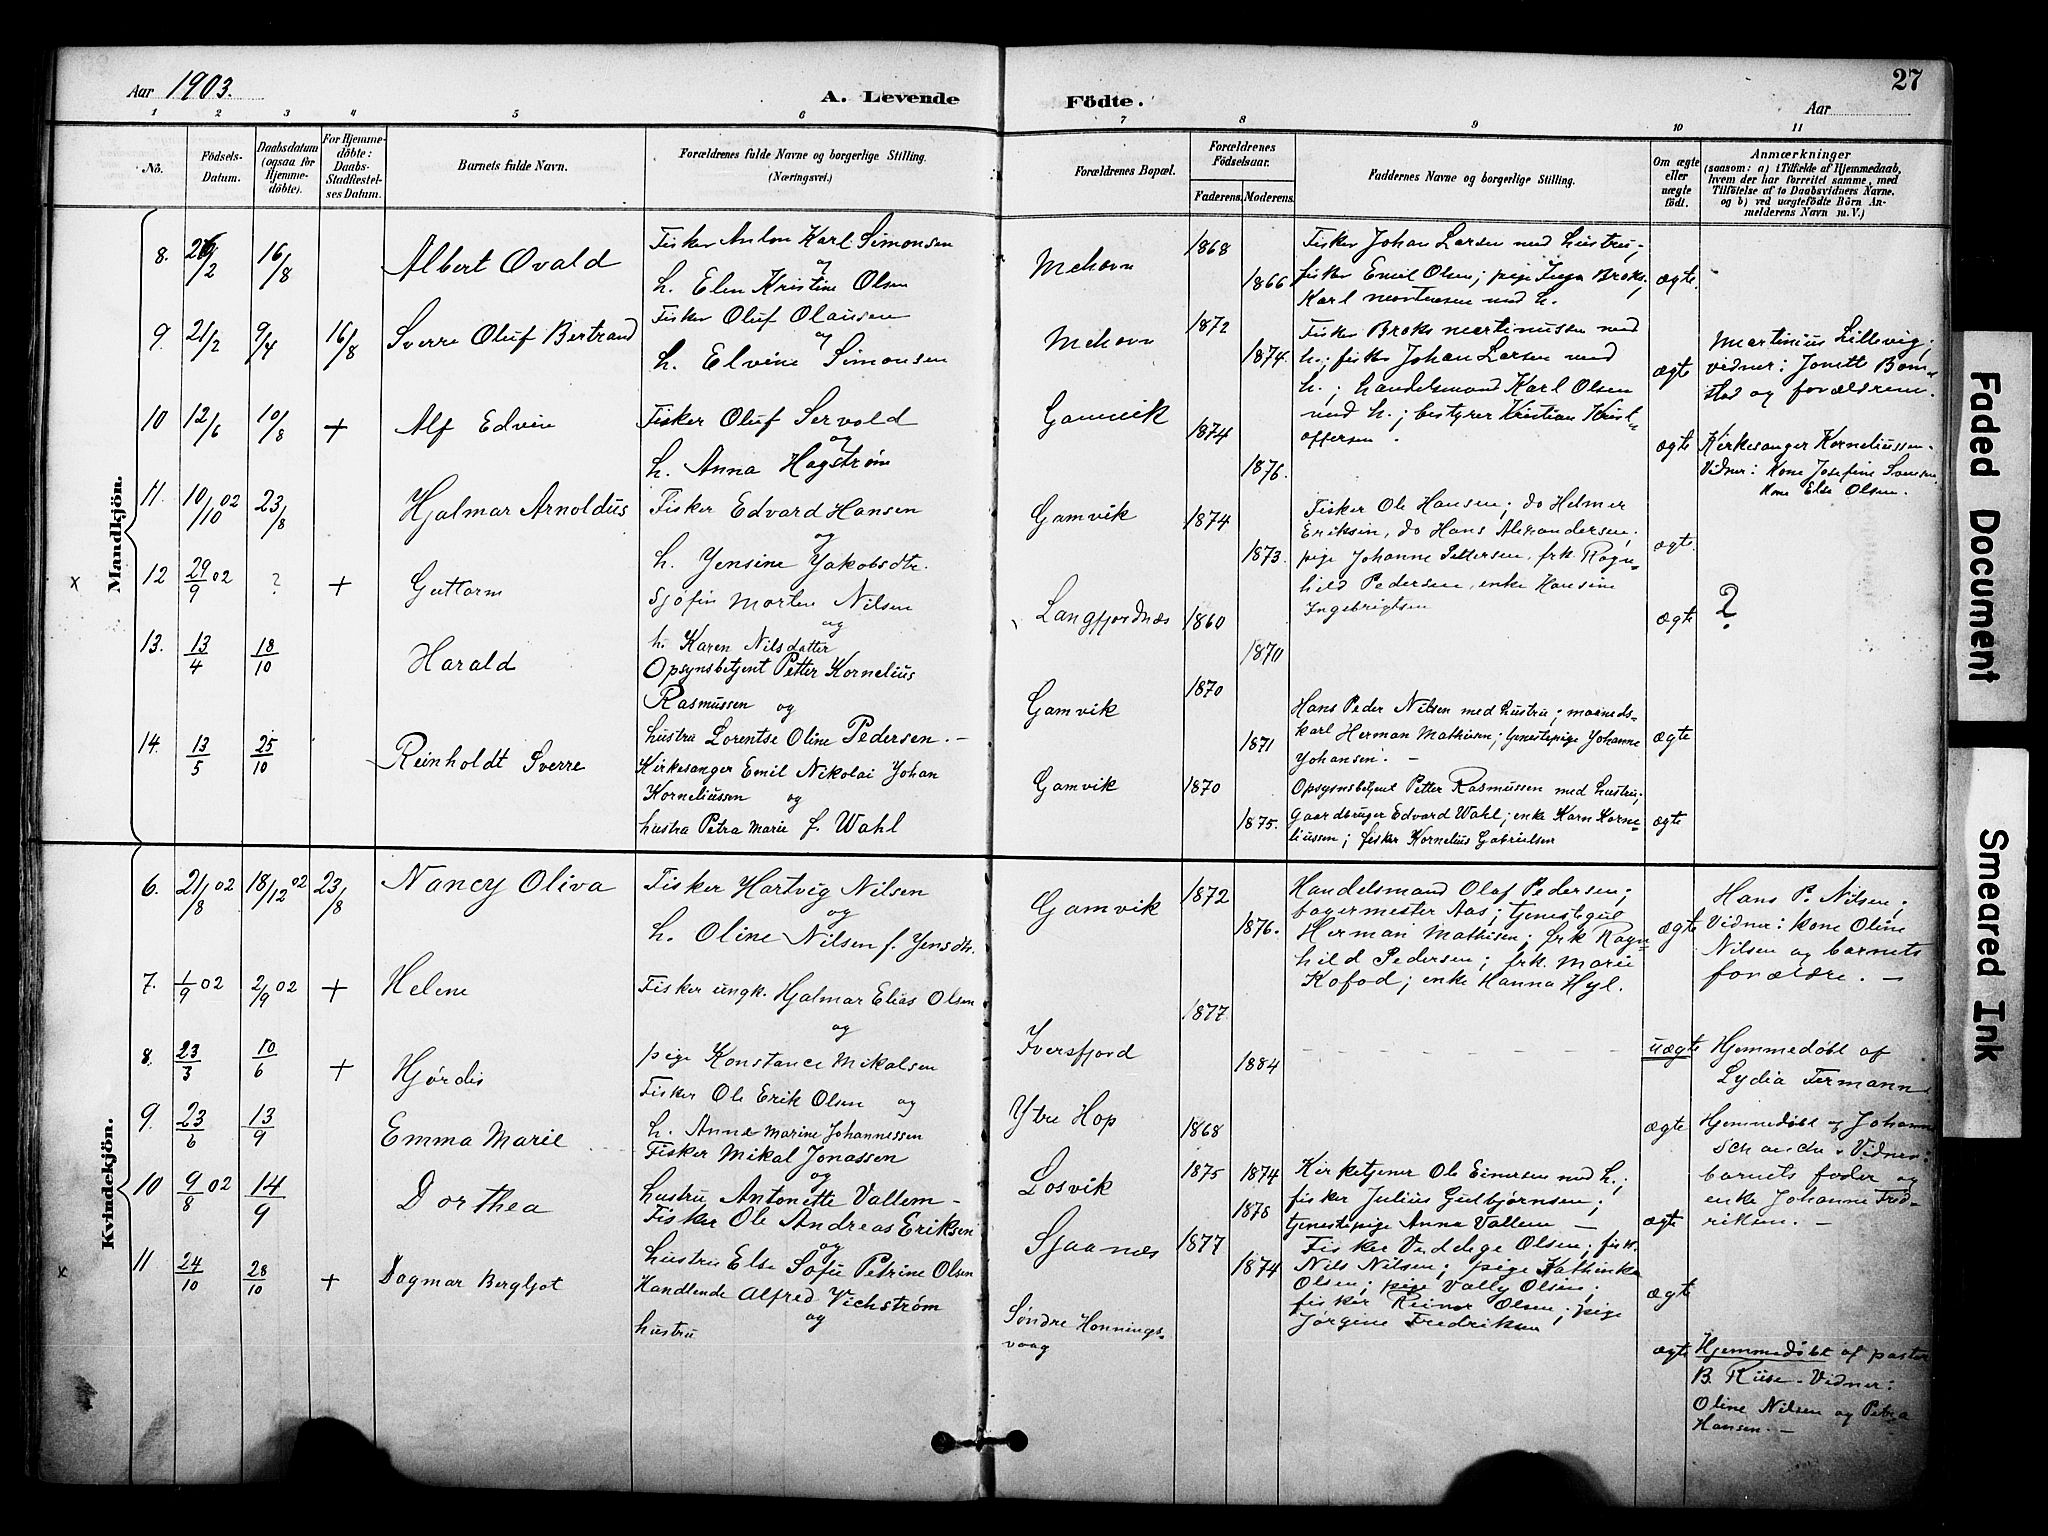 Aar 1903.
A. Levende Födte.
Aar
27
1 2 3 4 5 6 7 8 9 10 11
No.
Födsels-Datum.
Daabsdatum (ogsaa for Hjemmedöbte).
For Hjemmedöbte: Daabs-Stadfæstelses Datum.
Barnets fulde Navn.
Forældrenes fulde Navne og borgerlige Stilling. (Næringsvei.)
Forældrenes Bopæl.
Forældrenes Födselsaar.
Faderens. Moderens.
Faddernes Navne og borgerlige Stilling.
Om ægte eller uægte födt.
Anmærkninger
(saasom: a) i Tilfælde af Hjemmedaab, hvem der har forrettet samme, med Tilföielse af to Daabsvidners Navne. og b) ved uægtefödte Börn Anmelderens Navn m. V.)
Mandkjön.
8. 26/2 16/8 Albert Ovald
Fisker Anton Karl Simonsen
og
h. Elen Kristine Olsen
Mehavn 1868 1866
Fisker Johan Larsen med hustru;
fisker Emil Olsen; pige Inga Broks;
Karl Martinsen med h.
ægte.
9. 21/2 9/4 16/8 Sverre Oluf Bertrand
Fisker Oluf Olausen
og
h. Elvine Simonsen
Mehavn 1872 1874.
Fisker Broks Martinussen med
h.; fisker Johan Larsen med
h.; handelsmand Karl Olsen
med h.; bestyrer Kristian Krist-
offersen.
ægte
Martinius Lillevig;
vidner: Jonette Bom-
stad og forældrene.
10 12/6 10/8 + Alf Edvin
Fisker Oluf Servold
og
h. Anna Hagstrøm
Gamvik 1874 1876.
ægte
Kirkesanger Korneliussen.
Vidner: Kone Josefine Svensen
Kone Else Olsen.
11. 10/10 02 23/8 Hjalmar Arnoldus
Fisker Edvard Hansen
og
h. Jensine Jakobsdtr.
Gamvik 1874 1873.
Fisker Ole Hansen; do Helmer
Eriksen, do Hans Alexandersen;
pige Johanne Pettersen, frk. Ragn-
hild Pedersen, enke Hansine
Ingebrigtsen
ægte.
x 12 29/9 02 ? + Guttorm
Sjøfin Morten Nilsen
og
h. Karen Nilsdatter
Langfjordnæs 1860 1870
ægte
?
13. 13/4 18/10 Harald
Opsynsbetjent Petter Kornelius
Rasmussen og
hustru Lorentse Oline Pedersen. -
Gamvik 1870 1871
Hans Peder Nilsen med hustru; maaneds-
karl Herman Mathisen; tjenestepige Johanne
Johansen. -
ægte
14. 13/5 25/10 Reinholdt Sverre
Kirkesanger Emil Nikolai Johan
Korneliussen og
hustru Petra Marie f. Wahl
Gamvik 1870 1875.
Opsynsbetjent Petter Rasmussen med hustru;
Gaardbruger Edvard Wahl; enke Karn Korne-
liussen; fisker Kornelius Gabrielsen
ægte
Kvindekjön.
6. 21/8 02 18/12 02 23/8 Nancy Oliva
Fisker Hartvig Nilsen
og
h. Oline Nilsen f. Jensdtr.
Gamvik 1872 1876.
Handelsmand Olaf Pedersen;
bagermester Aas; tjenestegut
Herman Mathisen; frk Ragn-
hild Pedersen; frk. Marie
Kofod; enke Hanna Hyl.
ægte
Hans P. Nilsen;
Vidner: kone Oline
Nilsen og barnets
forældre. -
7. 1/9 02 2/9 02 + Helene
Fisker ungk. Hjalmar Elias Olsen
og
pige Konstance Mikalsen
Iversfjord 1877 1884
uægte
Hjemmedøbt af
Lydia Fermann
8. 23/3 10/6 + Hjørdis
Fisker Ole Erik Olsen og
h. Anne Marine Johannessen
Ytre Hop 1868 1874
ægte
Hjemmedøbt af Johanne
Schanche. Vidner:
barnets fader og
enke Johanne Fred-
riksen. -
9. 23/6 13/9 Emma Marie
Fisker Mikal Jonassen
og
hustru Antonette Vallem -
Losvik 1875 1878
Kirketjener Ole Einersen med h.;
fisker Julius Gulbjørnsen;
tjenestepige Anna Vallem -
ægte
10 9/8 02 14/9 Dorthea
Fisker Ole Andreas Eriksen
og
hustru Else Sofie Petrine Olsen
Sjaanæs 1877 1874
Fisker Veddege Olsen; fisk.
Nils Nilsen; pige Kathinka
Olsen; pige Vally Olsen;
fisker Reinor Olsen; pige
Jørgine Fredriksen
ægte
x 11 24/10 28/10 + Dagmar Bergljot
Handlende Alfred Vichstrøm
og
hustru
Søndre Honnings-
vaag
ægte
Hjemmedøbt af pastor
B. Riise. Vidner:
Oline Nilsen og Petra
Hansen. -
Faded Document
Smeared Ink